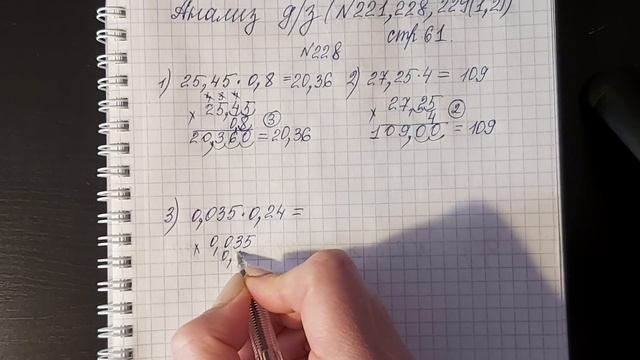 Анализ д/з (№221, 228, 229(1,2))
стр 61.
№228
1) 25,45 · 0,8 = 20,36
4 3 4
× 25,45
0,8 ③
20,360 = 20,36
2) 27,25 · 4 = 109
× 27,25
4 ②
109,00 = 109
3) 0,035 · 0,24 =
× 0,035
0,